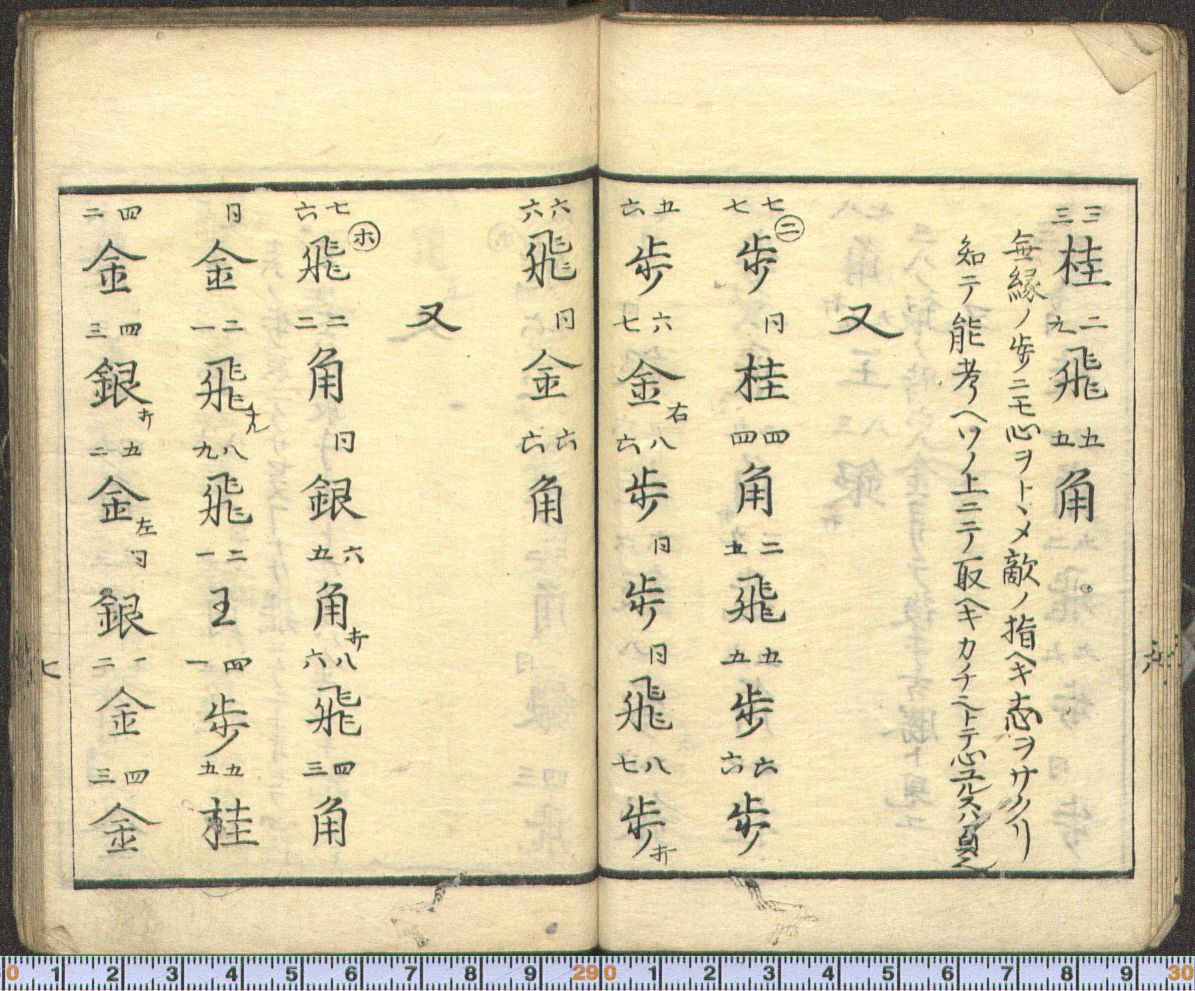 三三桂 二九飛 五五角
無縁ノ歩ニモ心ヲトヽメ敵ノ指ヘキ志ヲサクリ
知テ能考ヘソノ上ニテ取ヘキカチヘトテ心ユルスハ負也
又
七七㊁歩 同桂 四四角 三五飛 五五歩 六六歩
五六歩 六七金右 八六歩 同歩 同飛 八七歩打
六六飛 同金 六六角
又
七六㋭飛 二二角 同銀 六五角打 八六飛 四三角
同金 二一飛打 八九飛 二一王 四一歩 五五桂
四二金 四三銀打 五二金左 同銀 一二金 四三金
七